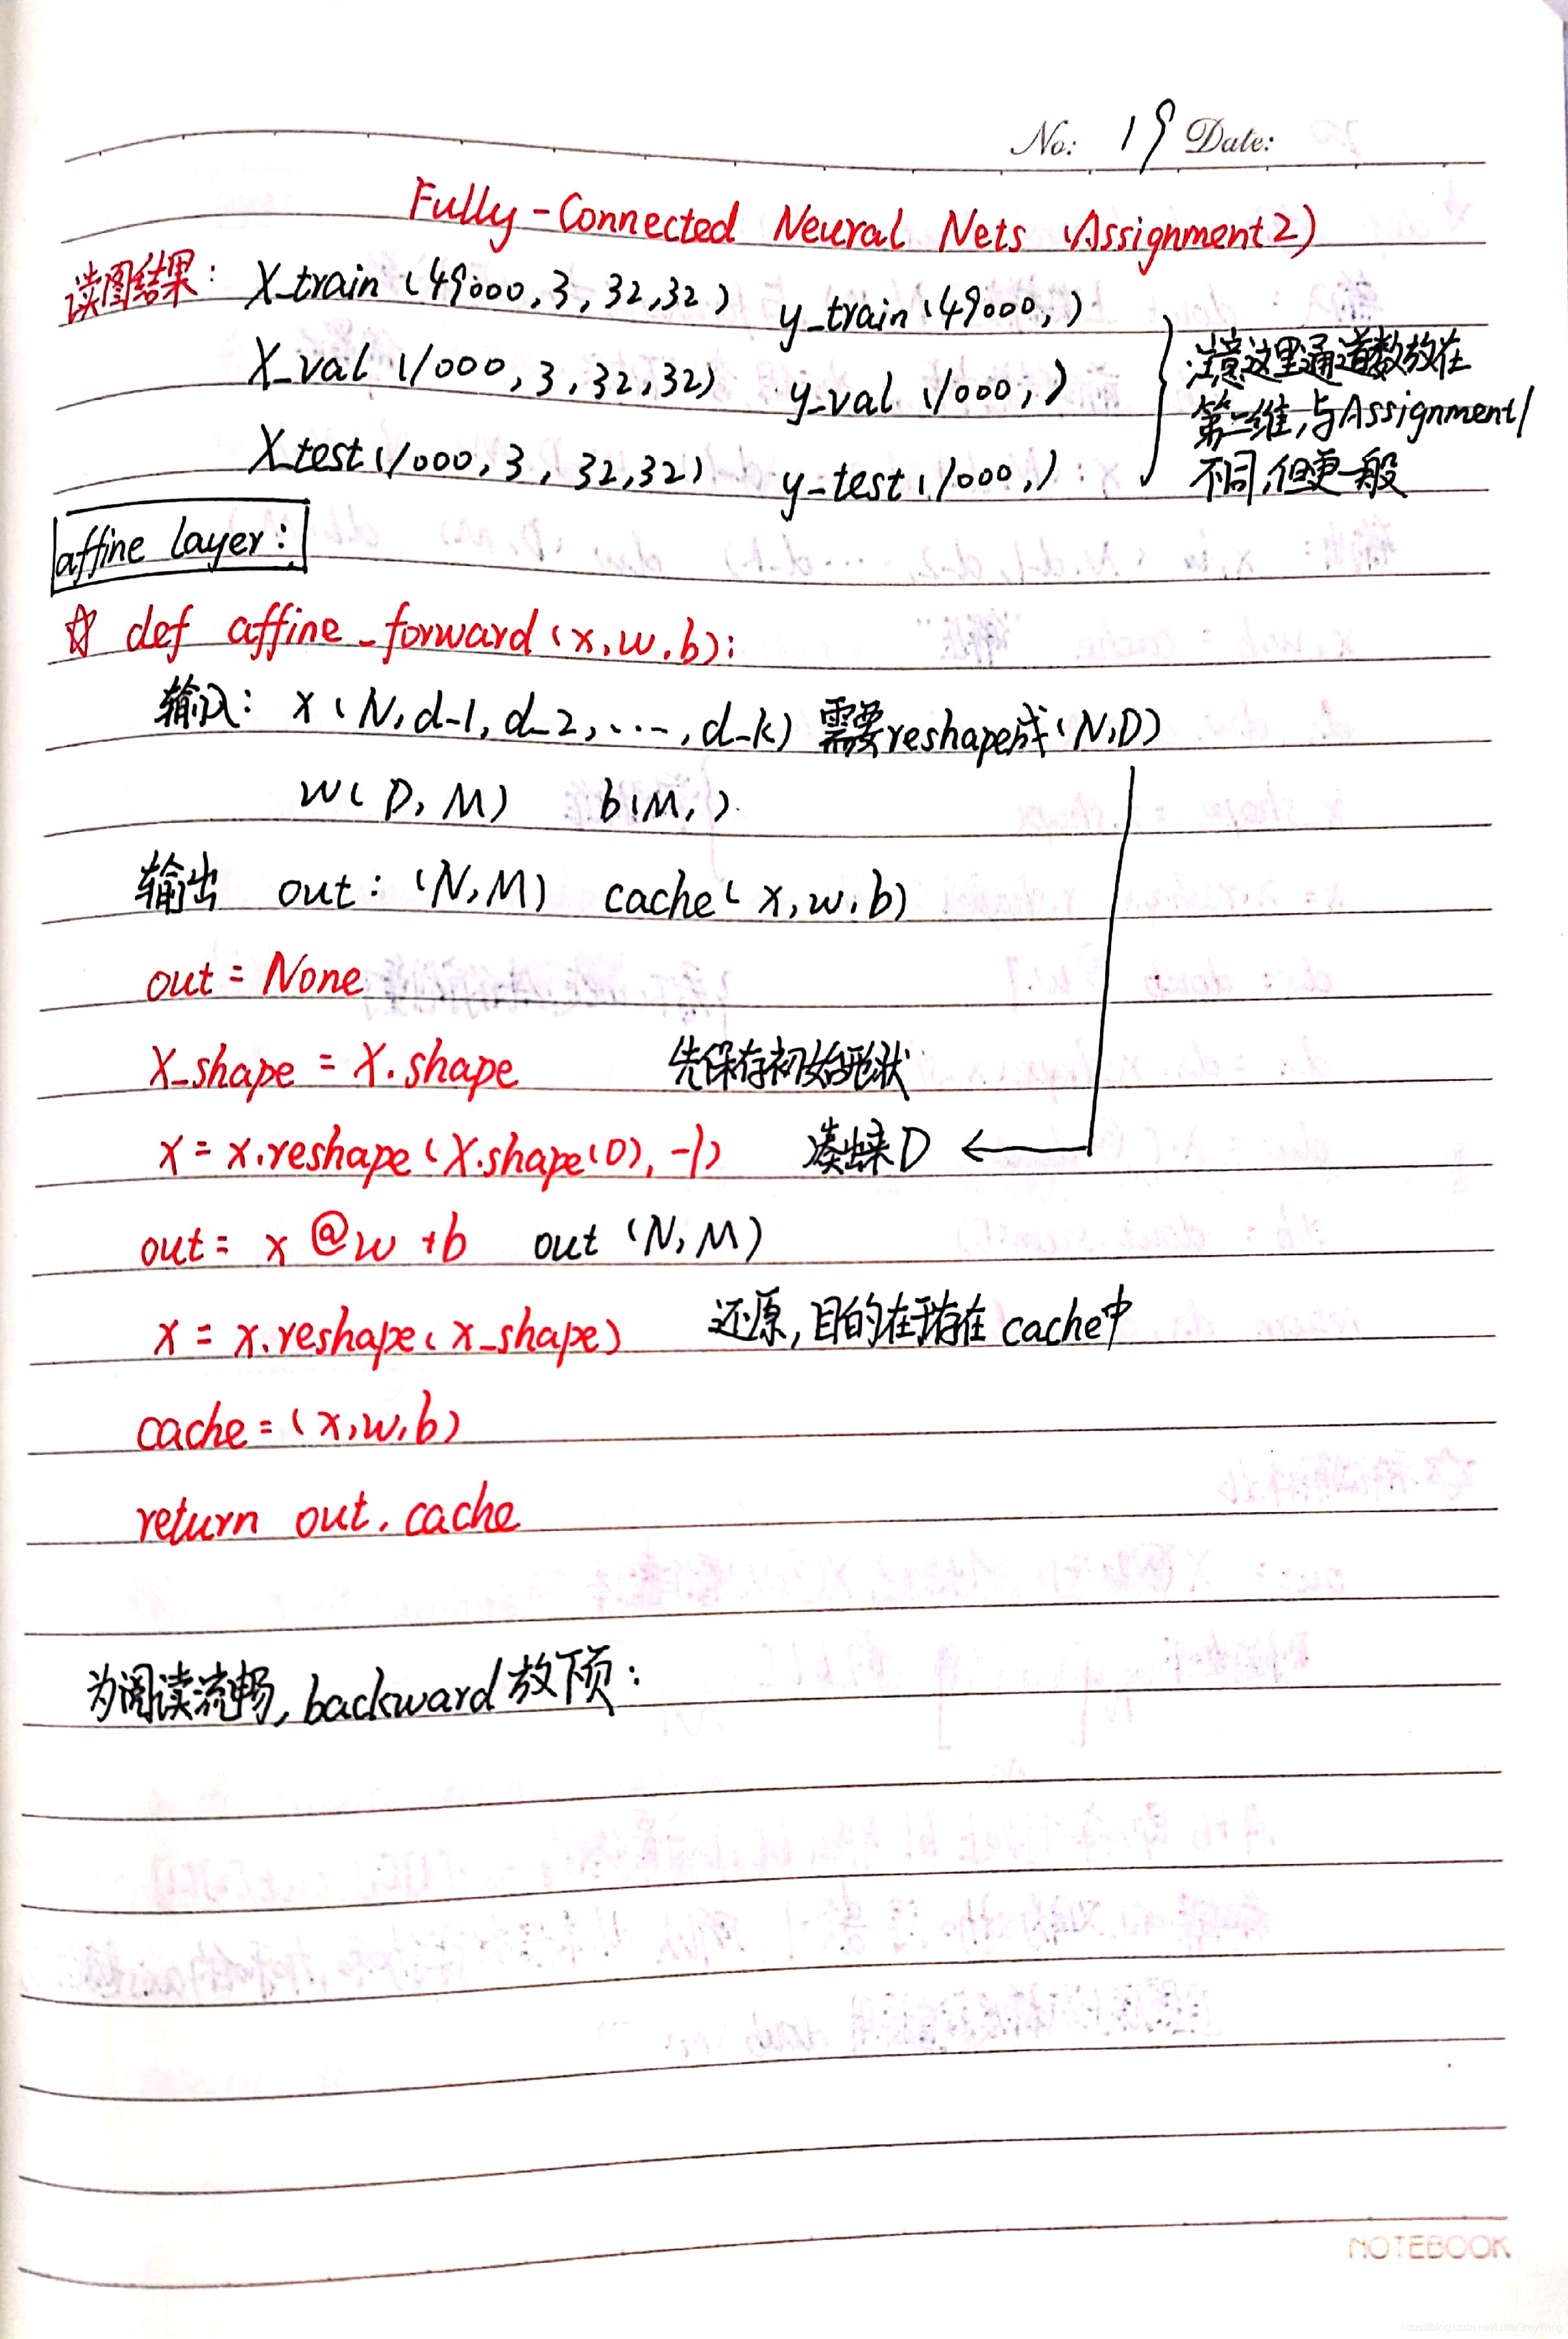 No: 19 Date:
Fully-Connected Neural Nets (Assignment2)
读图结果: X_train (49000,3,32,32) y_train (49000,)
X_val (1000,3,32,32) y_val (1000,)
X_test (1000,3,32,32) y_test (1000,)
注意这里通道数放在
第二维,与Assignment1
不同,但更一般
affine layer:
☆ def affine_forward(x,w,b):
输入: x (N,d-1,d_2,...,d_k) 需要reshape成(N,D)
w(D,M) b(M,).
输出 out: (N,M) cache(x,w,b)
out = None
X_shape = X.shape 先保存初始形状
x = x.reshape(X.shape(0),-1) 凑出来D ←
out = x @w +b out (N,M)
x = x.reshape(x_shape) 还原,目的在于存在cache中
cache=(x,w,b)
return out, cache
为阅读流畅,backward放下页:
NOTEBOOK
https://blog.csdn.net/LittleGreyWing